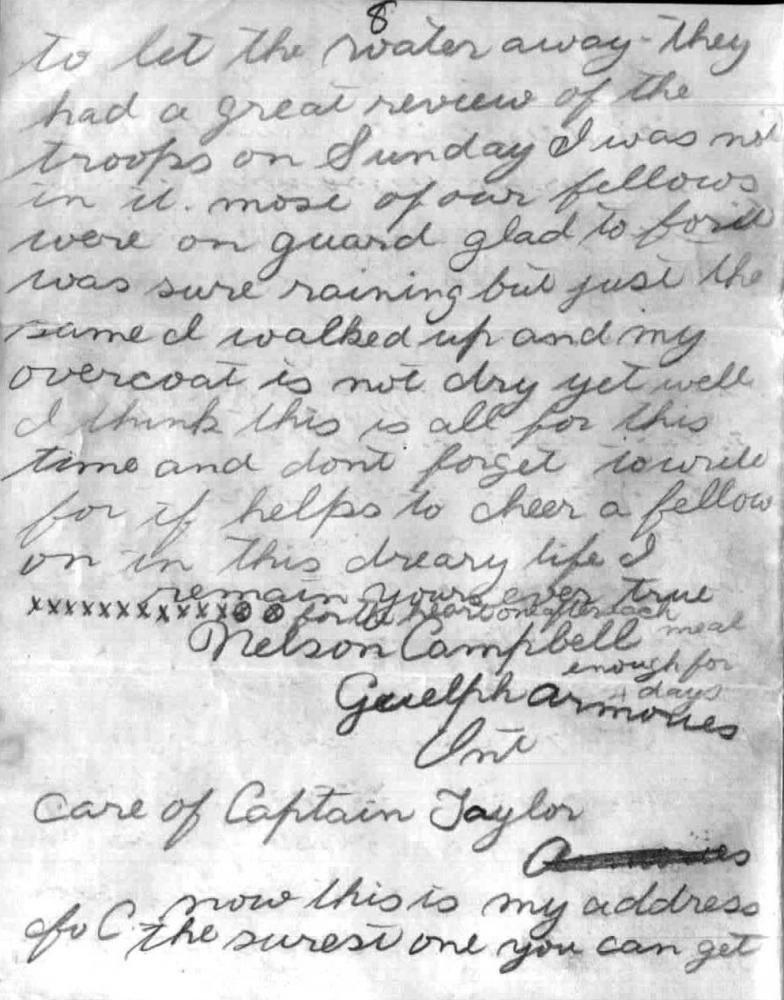 8
to let the water away - they
had a great review of the
troops on Sunday I was not
in it. most of our fellows
were on guard glad to for it
was sure raining but just the
same I walked up and my
overcoat is not dry yet well
I think this is all for this
time and dont forget to write
for if helps to cheer a fellow
on in this dreary life I
remain yours ever true
xxxxxxxxxxxx⊗ ⊗ for the heart one after each meal
enough for
4 days
Nelson Campbell
Guelph Armories
Ont
care of Captain Taylor
now this is my address
c/o C. the surest one you can get